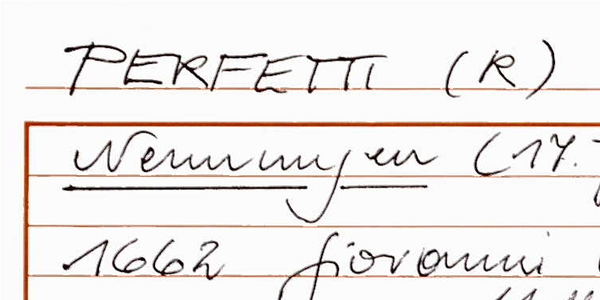 PERFETTI (R)
Nennungen (17.
1662 Giovanni